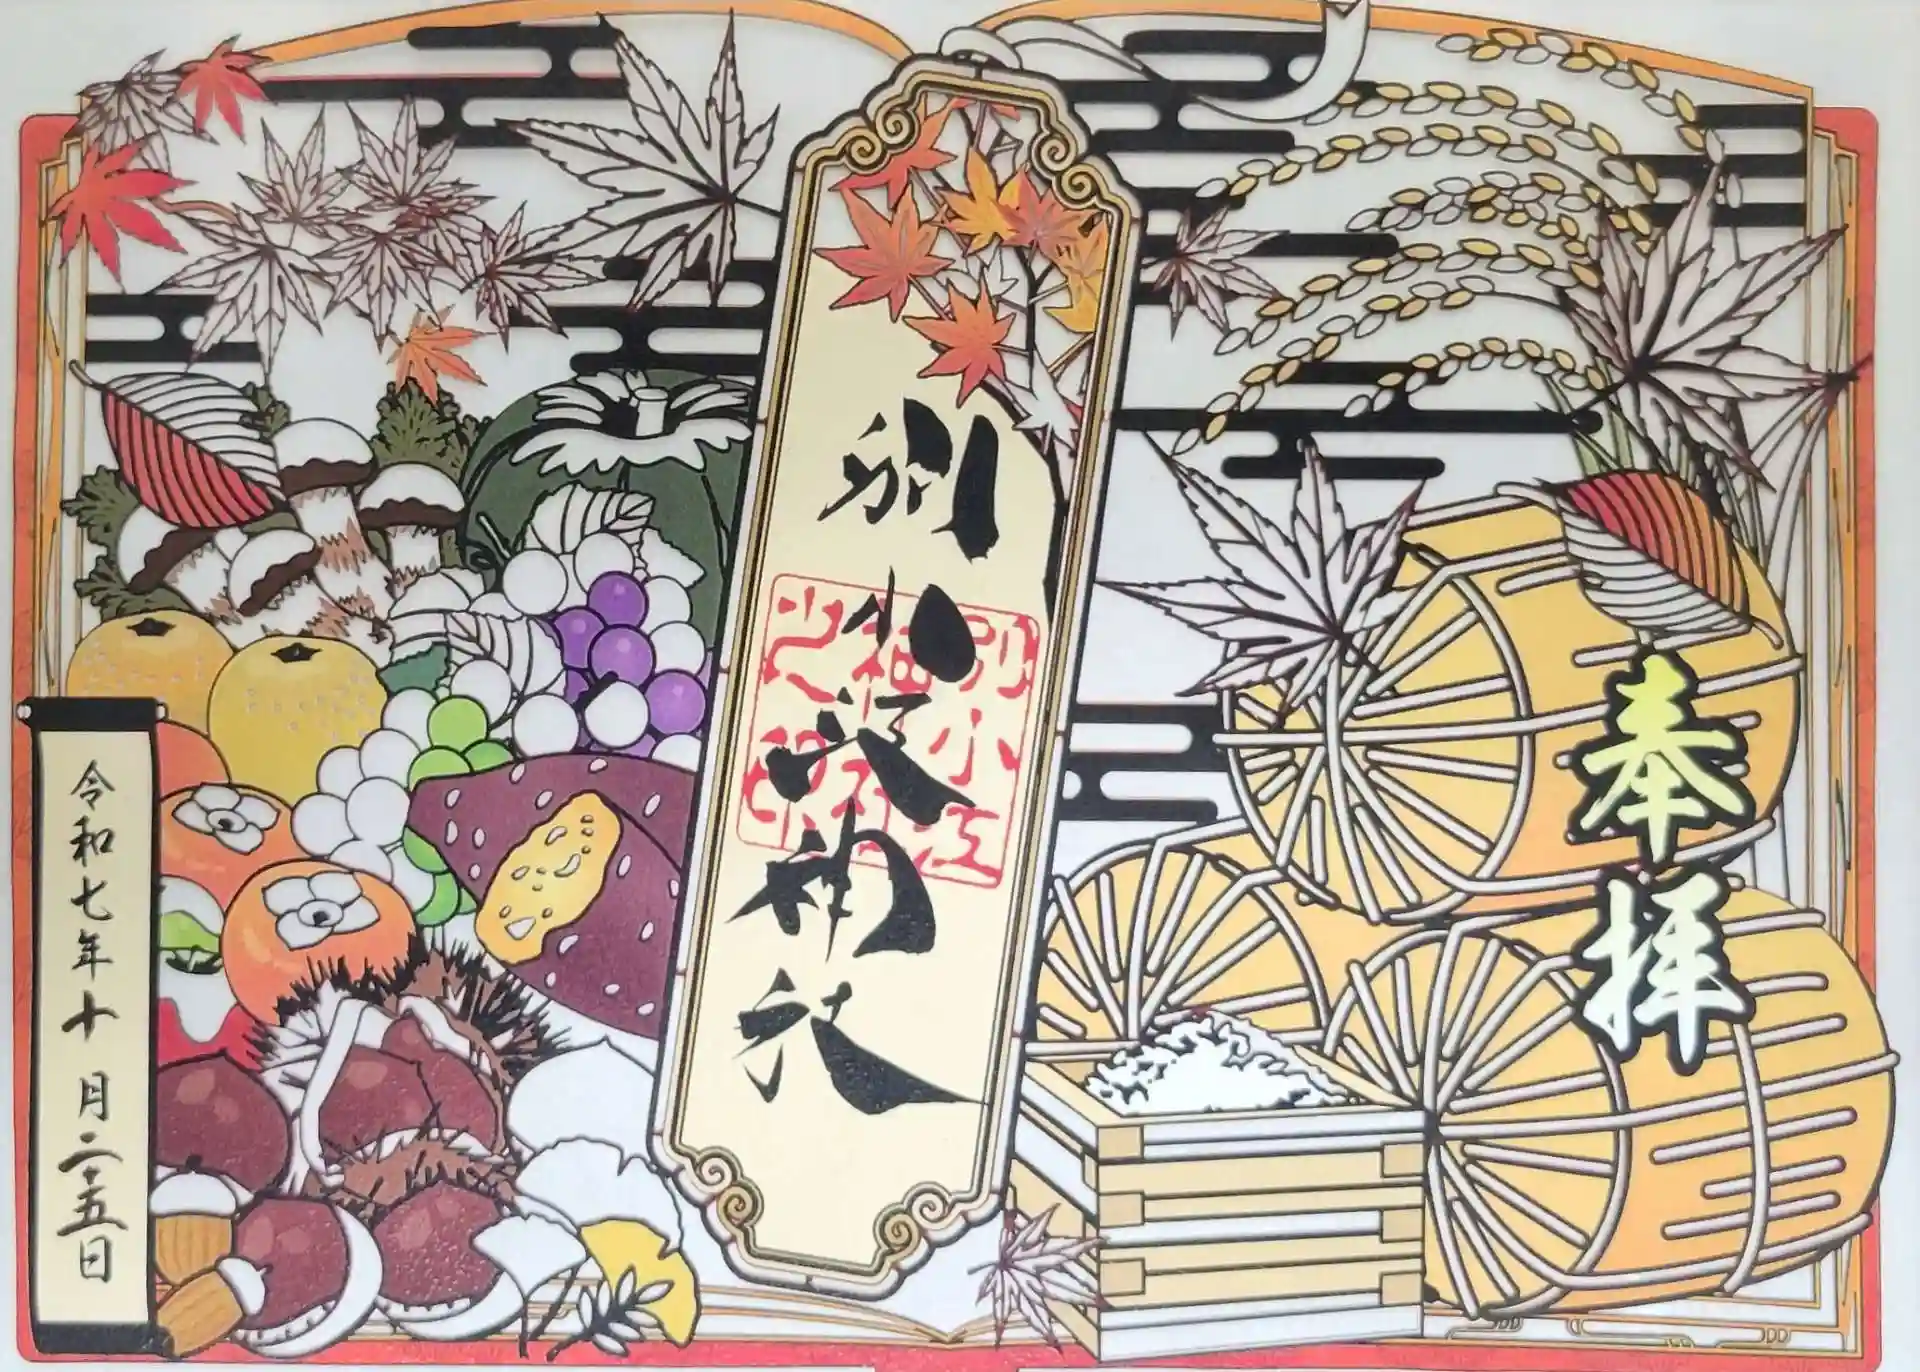 奉拝
別小江神社
別小江
神社
之印
令和七年十月二十五日